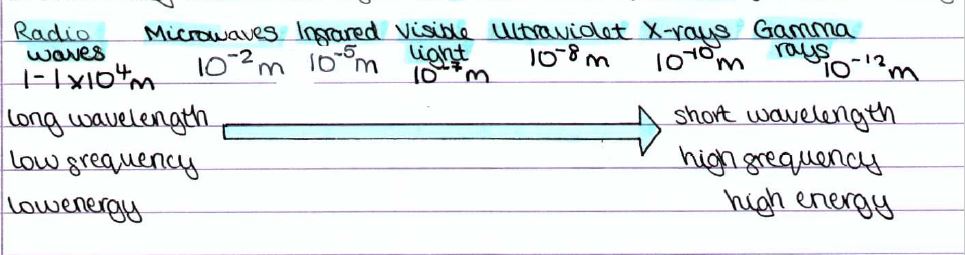 Radio waves Microwaves Infrared Visible light Ultraviolet X-rays Gamma rays
1-1x10⁴m 10⁻²m 10⁻⁵m 10⁻⁷m 10⁻⁸m 10⁻¹⁰m 10⁻¹²m
long wavelength short wavelength
low frequency high frequency
low energy high energy